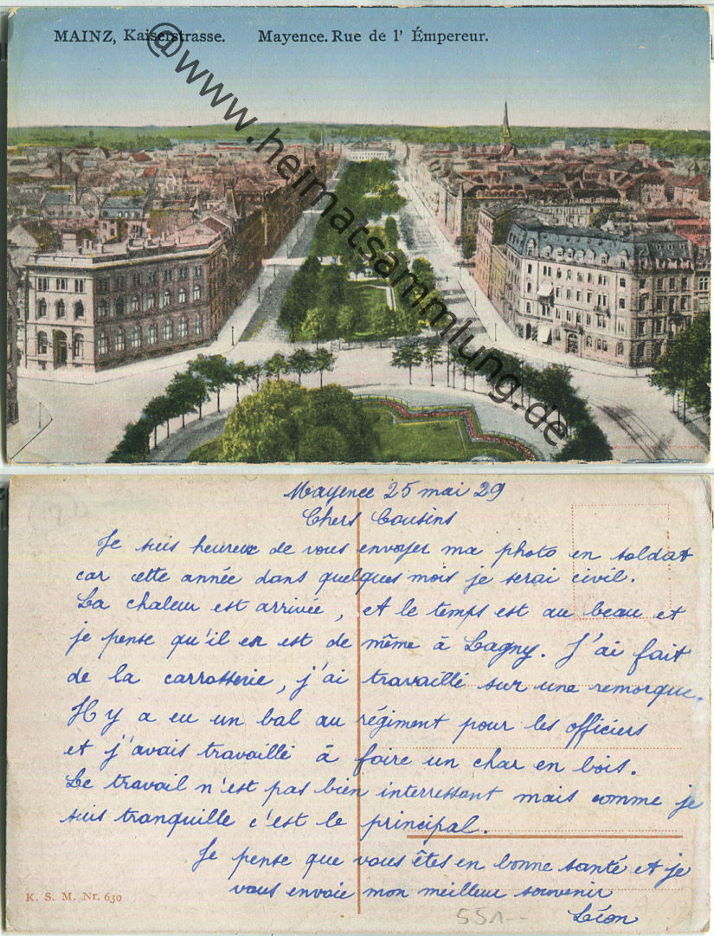 MAINZ, Kaiserstrasse. Mayence. Rue de l' Émpereur.
@www.heimatsammlung.de
Mayence 25 mai 29
Chers Cousins
Je suis heureux de vous envoyer ma photo en soldat
car cette année dans quelques mois je serai civil.
La chaleur est arrivée, et le temps est au beau et
je pense qu'il en est de même à Lagny. J'ai fait
de la carrosserie, j'ai travaillé sur une remorque.
Il y a eu un bal au régiment pour les officiers
et j'avais travaillé à faire un char en bois.
Le travail n'est pas bien interressant mais comme je
suis tranquille c'est le principal.
Je pense que vous êtes en bonne santé et je
vous envoie mon meilleur souvenir
Léon
K. S. M. Nr. 630